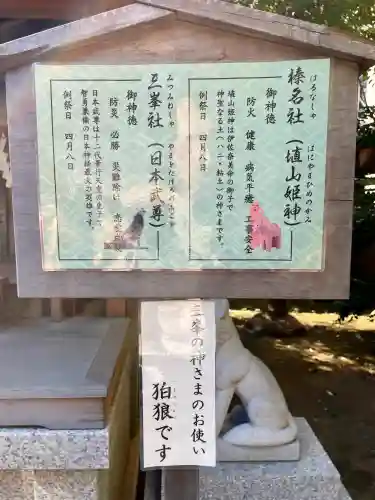 榛名社（埴山姫神）
はるなしゃ　はにやまひめのかみ
御神徳
防火　健康　病気平癒　工事安全
埴山姫神は伊佐奈美命の御子で
神聖なる土（ハニ・粘土）の神さまです。
例祭日　四月八日
三峯社（日本武尊）
みつみねしゃ　やまとたけるのみこと
御神徳
防災　必勝　災難除い　恋愛
日本武尊は十二代景行天皇の皇子で
智勇兼備の日本神話最大の英雄です。
例祭日　四月八日
三峯の神さまのお使い
狛狼です